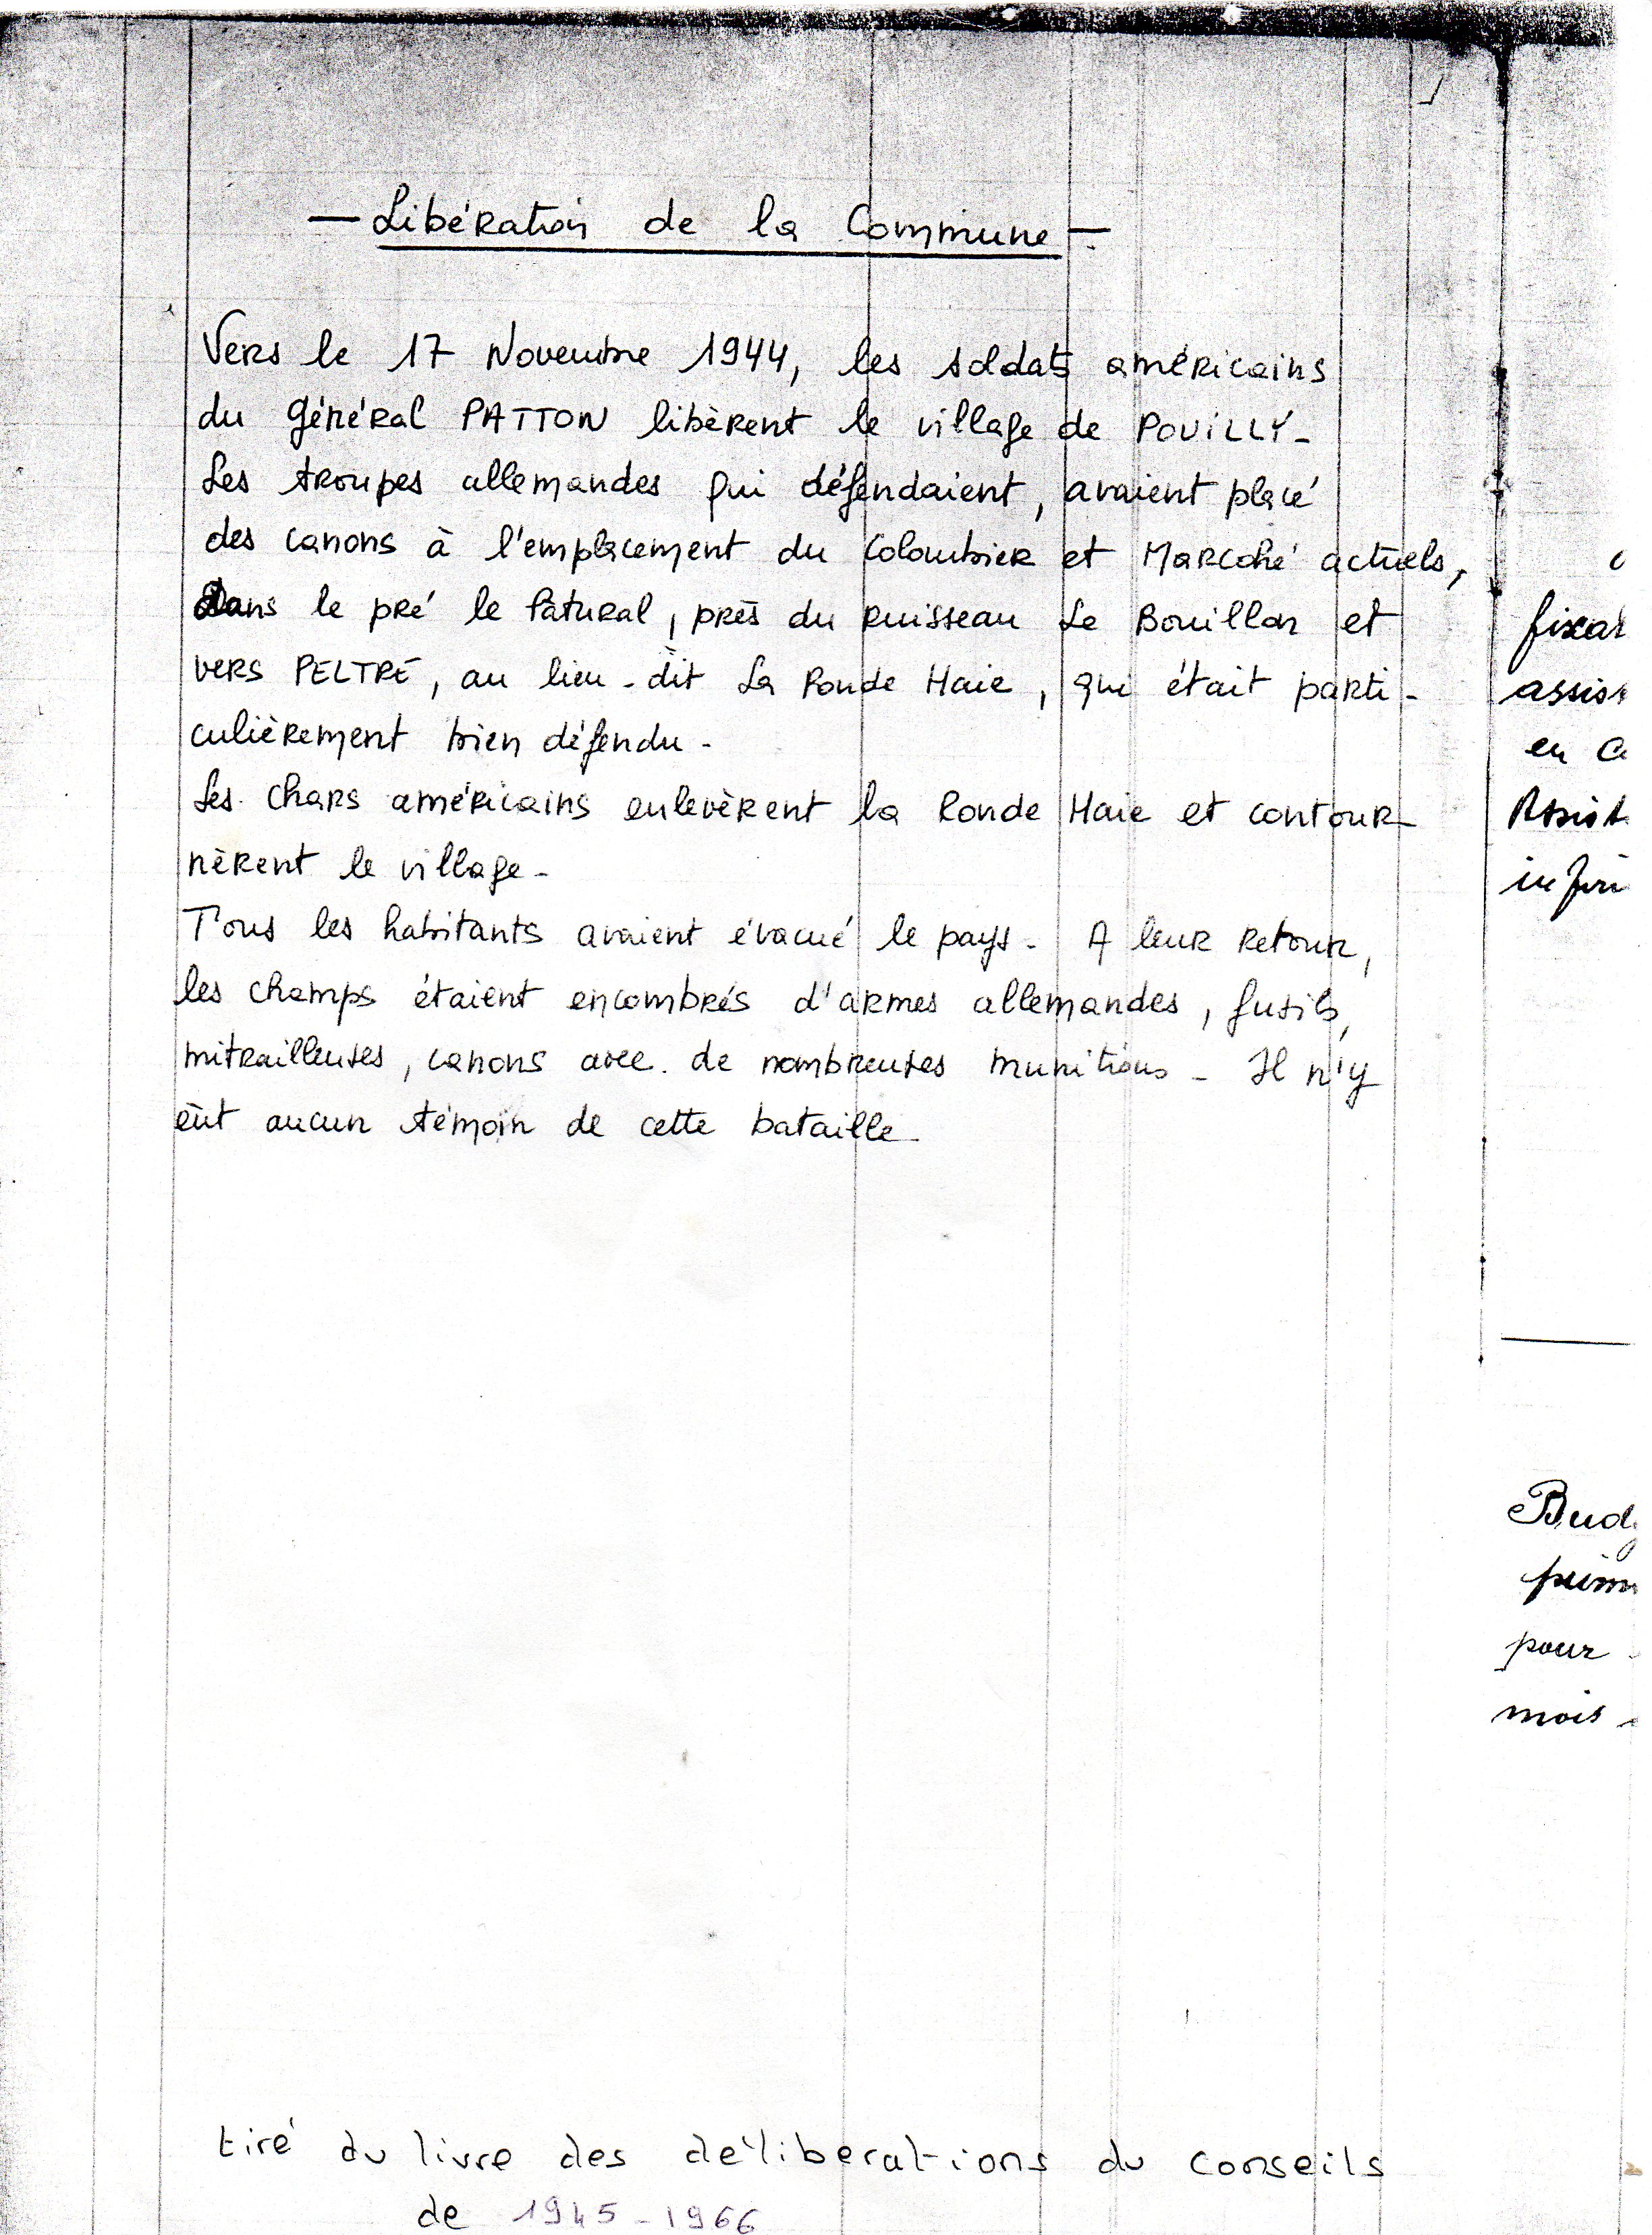 — Libération de la Commune —
Vers le 17 Novembre 1944, les soldats américains
du Général PATTON libèrent le village de POUILLY-
Les troupes allemandes qui défendaient, avaient placé
des canons à l'emplacement du Colombier et Marcohé actuels,
Dans le pré le Patural, près du ruisseau Le Bouillon et
vers PELTRE, au lieu-dit La Ronde Haie, qui était parti-
culièrement bien défendu-
Les chars américains enlevèrent la Ronde Haie et contour-
nèrent le village-
Tous les habitants avaient évacué le pays- A leur retour,
les champs étaient encombrés d'armes allemandes, fusils,
mitrailleuses, canons avec de nombreuses munitions- Il n'y
eût aucun témoin de cette bataille-
fixat
assis
en C
Assist
infir
Budg
prim
pour
mois
tiré du livre des délibérations du conseils
de 1945-1966